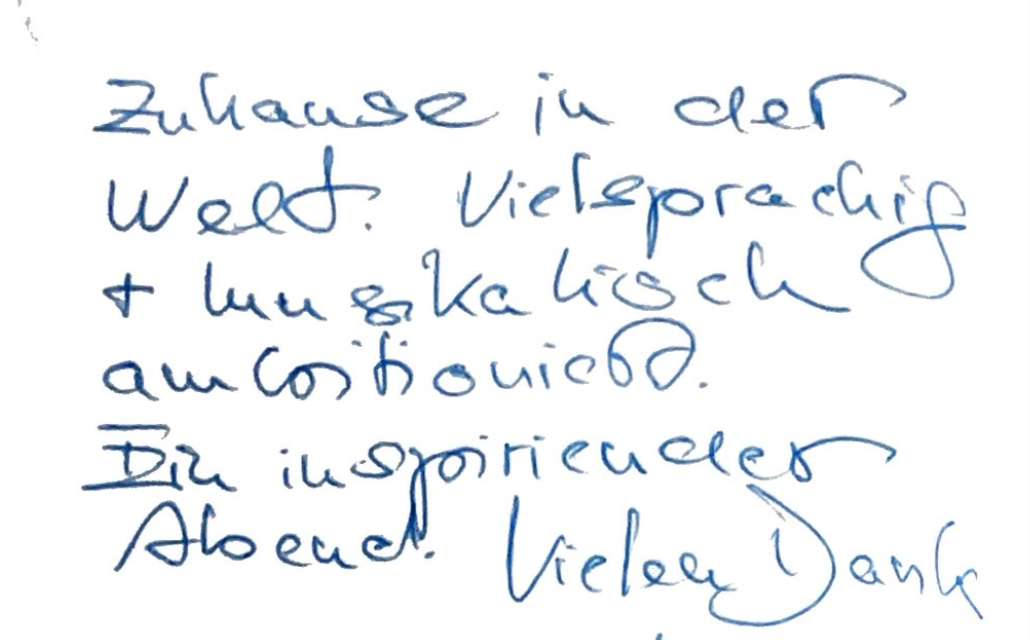 Zuhause in der
Welt. Vielsprachig
+ musikalisch
Ein inspirierender
Abend. Vielen Dank